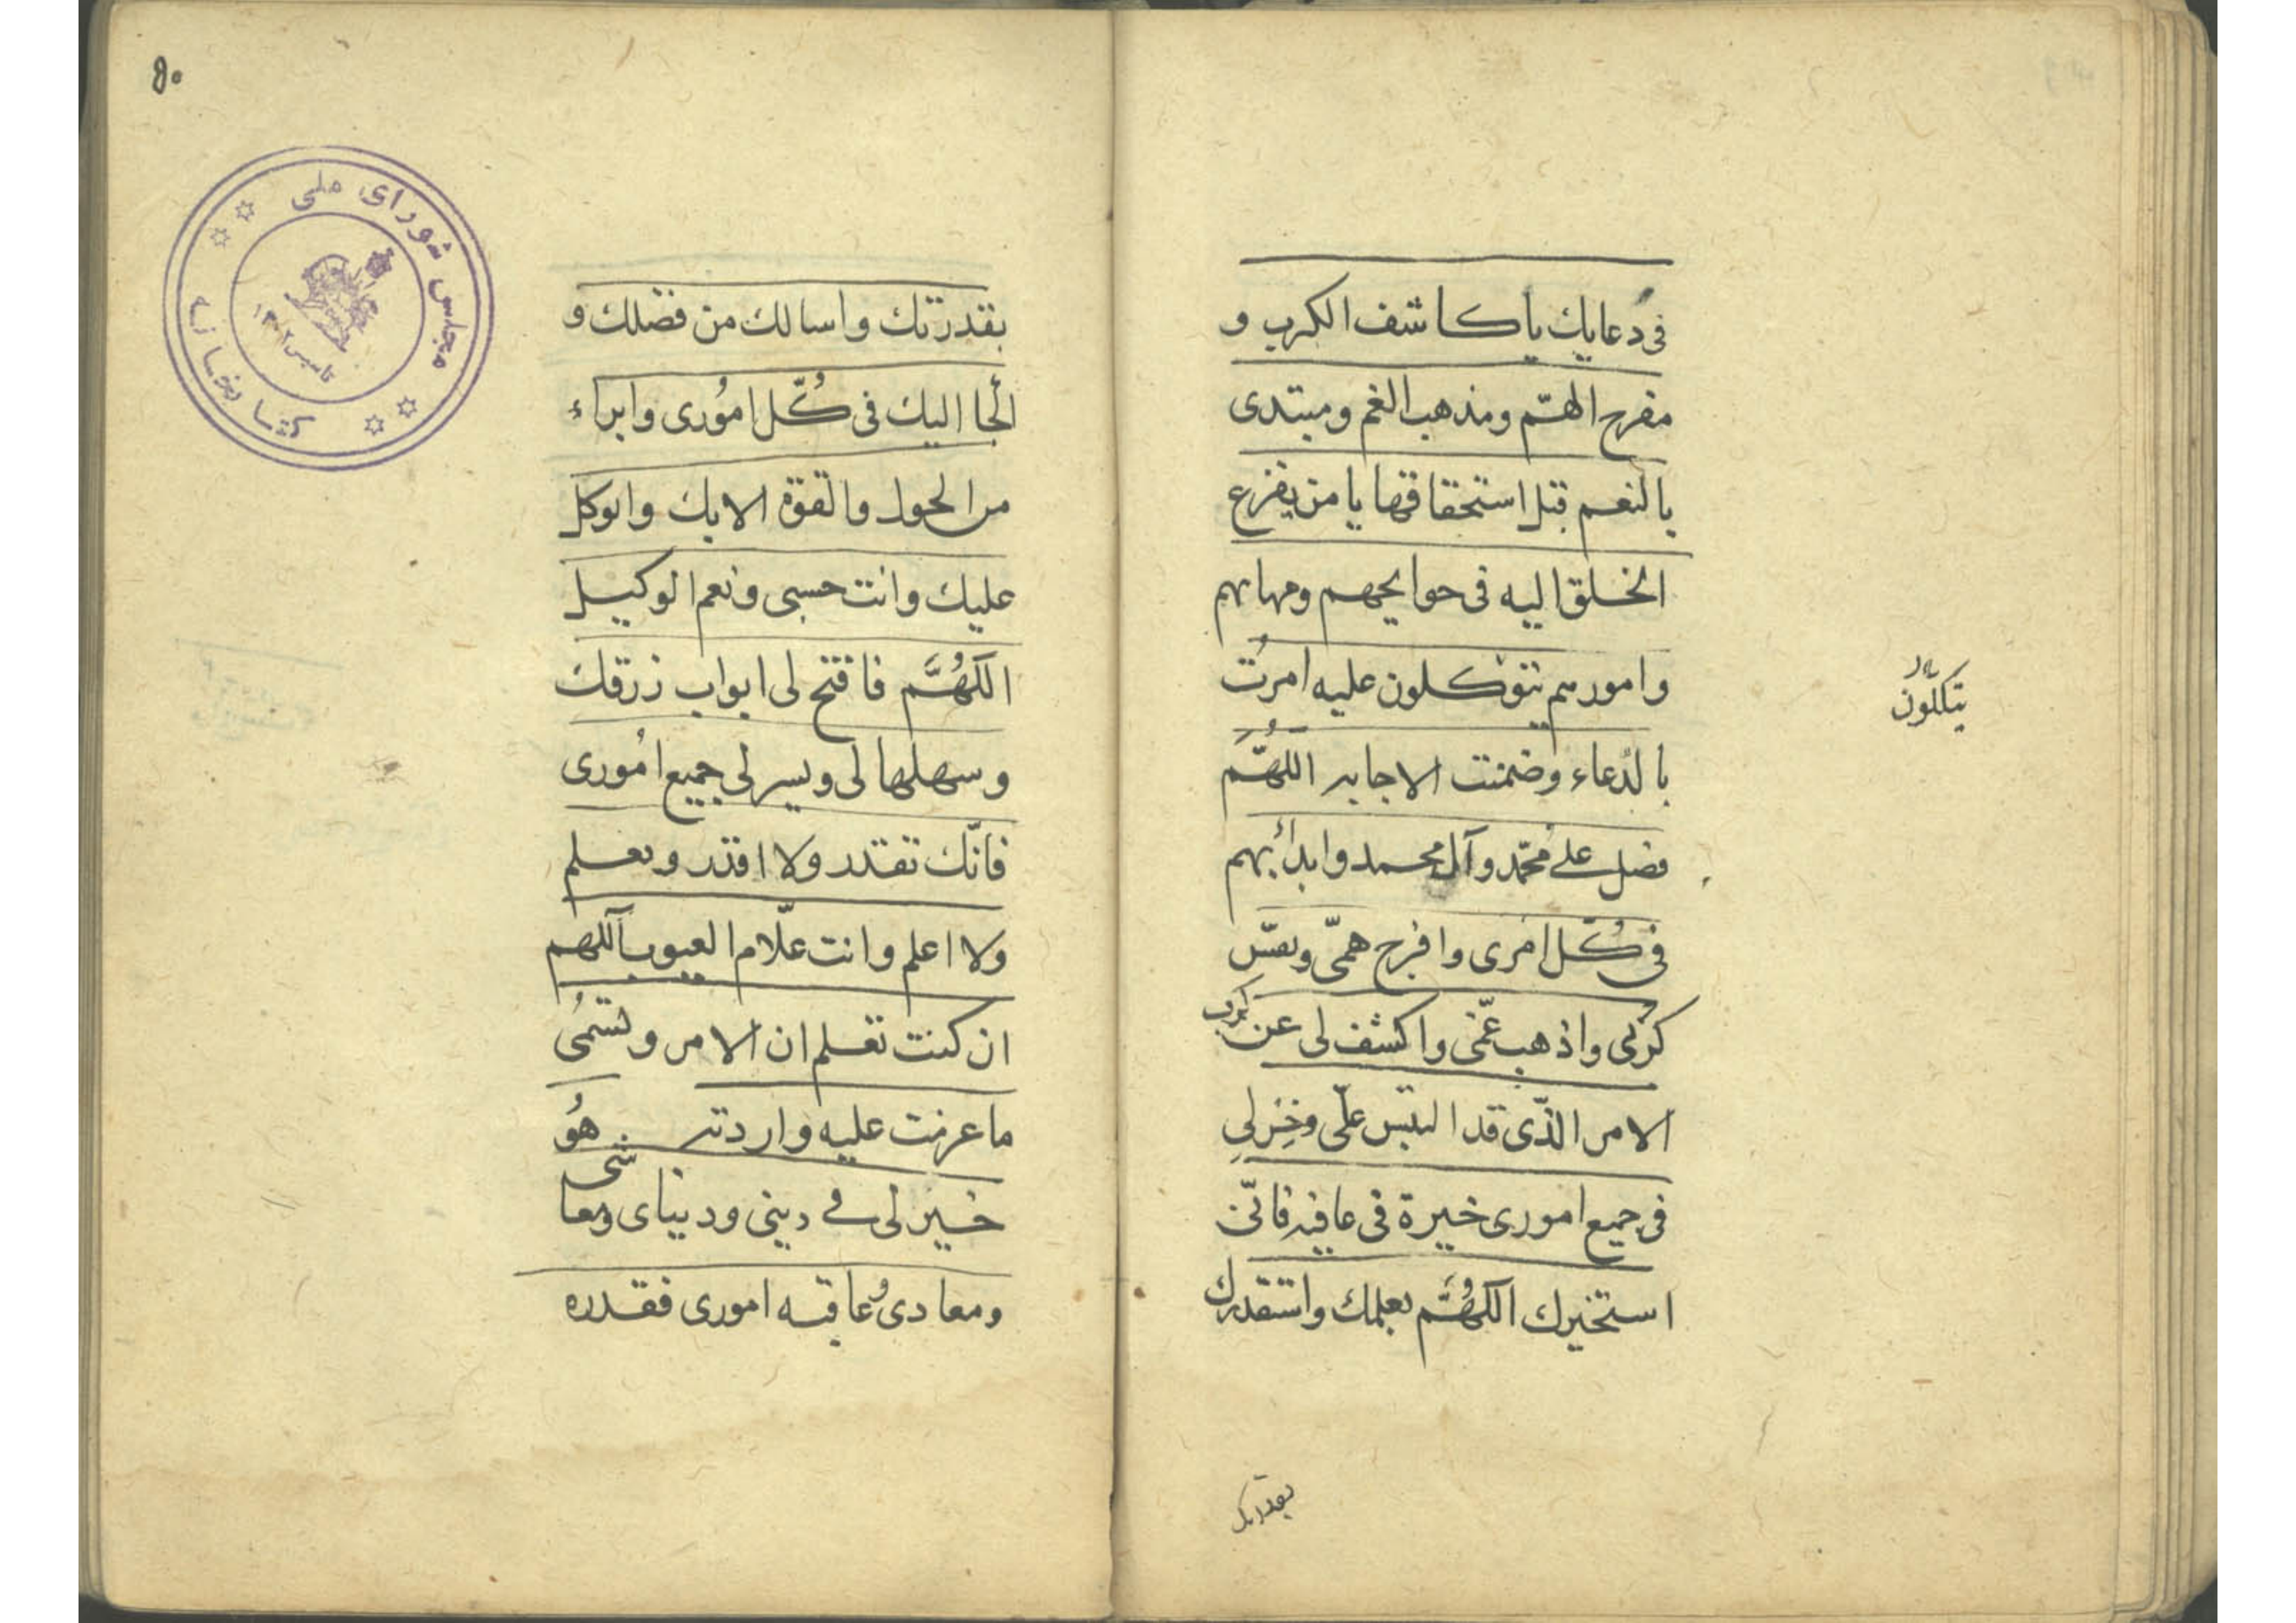 فی دعایك یا كاشف الكرب و
مفرج الهمّ ومذهب الغم ومبتدی
بالنعم قبل استحقاقها یا من یفزع
الخلق الیه فی حوایجهم ومهماتهم
وامورهم یتوكلون علیه امرُت
یتكلّون
بالدُعاء وضمنت الاجابه اللهُمَّ
فصل علی محمّد وآل محمد وابدأ بهم
فی كُلّ امری وافرج همّی ونفّس
كربی واذهب غمّی واكشف لی عن كرب
الامر الذّی قد التبس علّی وخِر لی
فی جمیع اموری خیرة فی عافیه فانّی
استخیرك اللهُمَّ بعلمك واستقدرك
بقدرتك
۵۰
مجلس شورای ملی
كتابخانه
تاسیس ۱۳۰۲
بقدرتك واسالك من فضلك و
الجأ الیك فی كُلّ امُوری وابراء
من الحول والقوّة الا بك واتوكل
علیك وانت حسبی ونعم الوكیل
اللهُمَّ فافتح لی ابواب رزقك
وسهلها لی ویسر لی جمیع امُوری
فانّك تقدر ولا اقدر وتعلم
ولا اعلم وانت علّام الغیوب آللهم
ان كنت تعلم ان الامر وتسمُی
ما عزمت علیه واردته هُو
خیر لی فی دینی ودنیای ومعاشی
ومعادی وعاقبه اموری فقدره